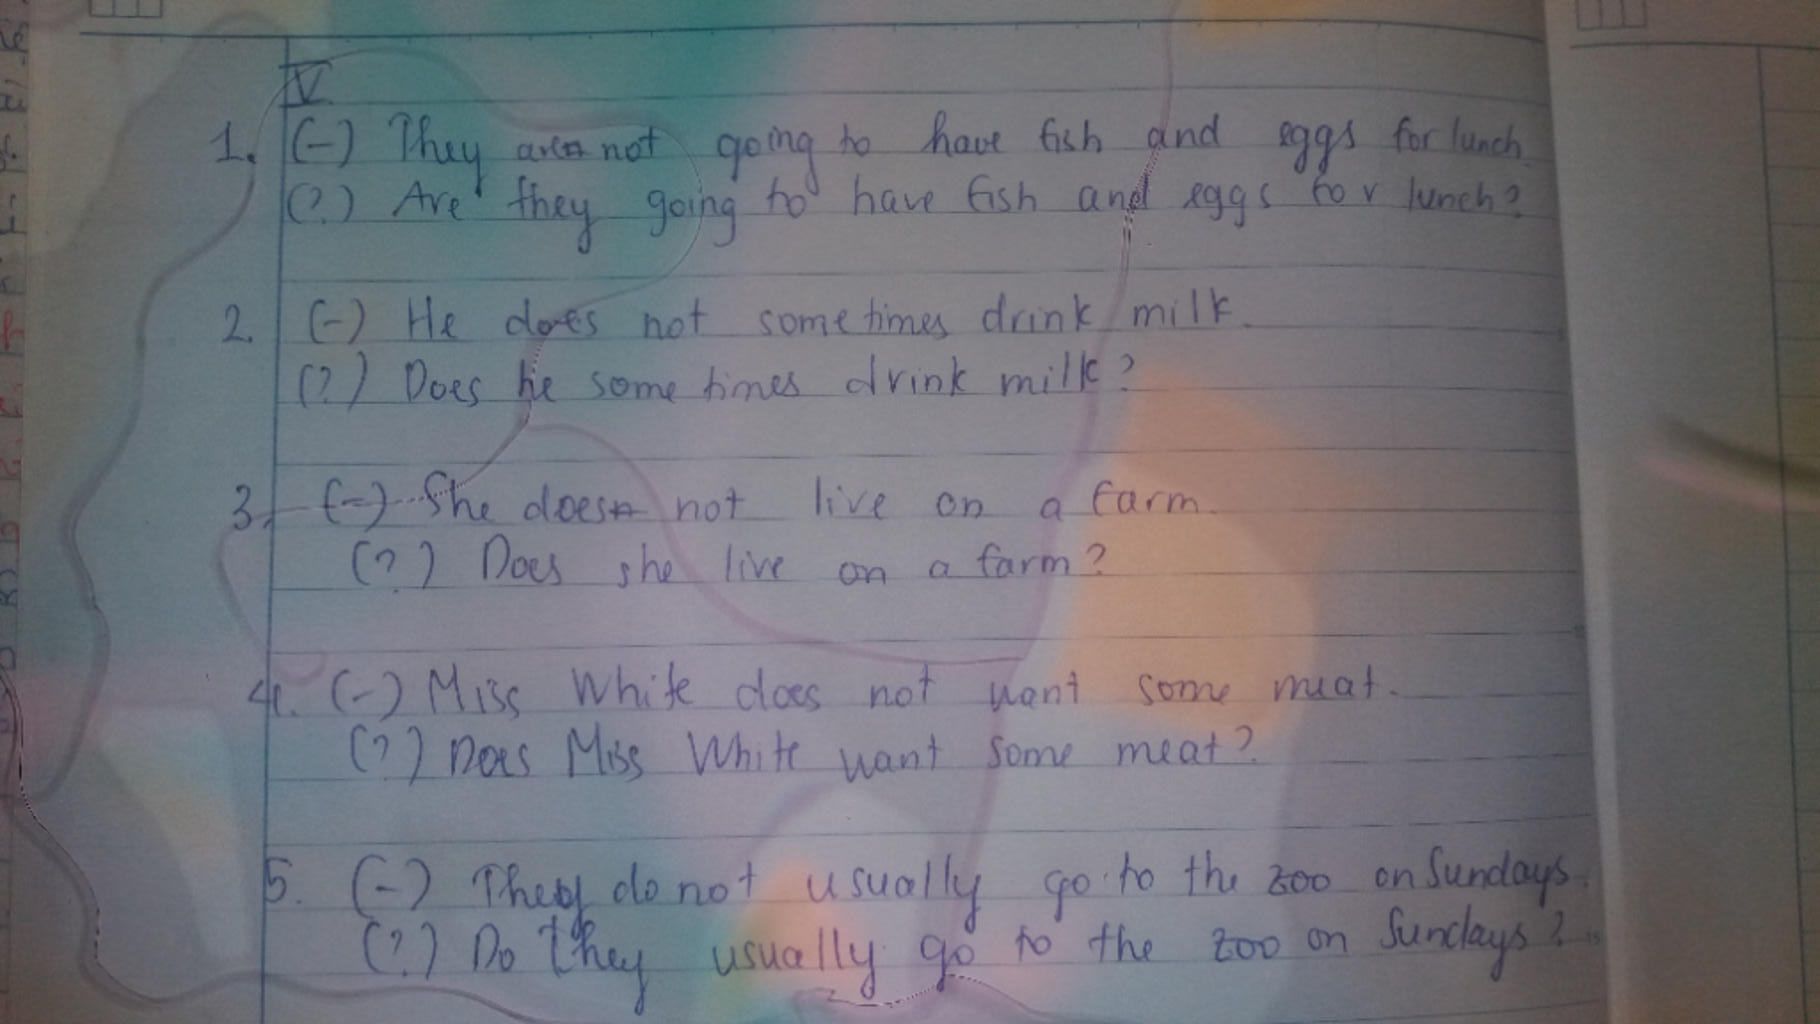 V
1. (-) They are not going to have fish and eggs for lunch.
(?) Are they going to have fish and eggs for lunch?
2. (-) He does not sometimes drink milk.
(?) Does he sometimes drink milk?
3. (-) She does not live on a farm.
(?) Does she live on a farm?
4. (-) Miss White does not want some meat.
(?) Does Miss White want some meat?
5. (-) They do not usually go to the zoo on Sundays.
(?) Do they usually go to the zoo on Sundays?